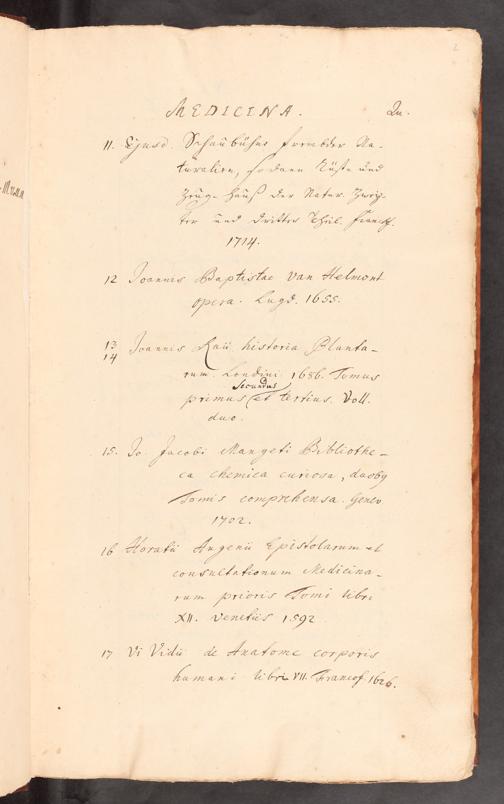 2
MEDICINA. 2n.
11. Ejusd. Schaubühne frembder Na-
turalien, sodann Rüst- und
Zeug-Hauß der Natur. Zwey-
ter und dritter Theil. Francf.
1714.
12 Joannis Baptistae van Helmont
opera. Lugd. 1655.
13 Joannis Raii historia Planta-
14
rum. Londini 1686. Tomus
secundus
primus et tertius. Voll.
duo.
15. Jo. Jacobi Mangeti Bibliothe-
ca chemica curiosa, duobq
Tomis comprehensa. Genev
1702.
16 Horatii Augenii Epistolarum et
consultationum Medicina-
rum prioris Tomi libri
XII. Venetiis 1592
17 Vi Vidii de Anatome corporis
humani libri VII. Francof. 1626.